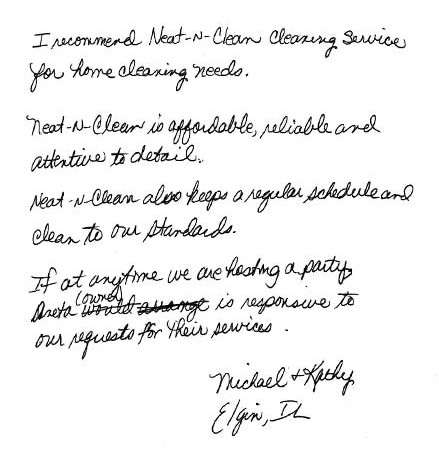 I recommend Neat-N-Clean Cleaning Service
for home cleaning needs.
Neat-N-Clean is affordable, reliable and
attentive to detail.
Neat-N-Clean also keeps a regular schedule and
clean to our standards.
If at anytime we are hosting a party,
(owner)
Aneta would arrange is responsive to
our requests for their services.
Michael & Kathy
Elgin, IL